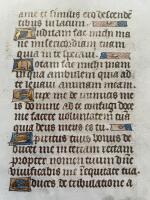 ame et similis ero descenden
tibus in lacum.
Auditam fac michi ma
ne misericordiam tuam
quia in te speravi.
Notam fac michi viam
in qua ambulem quia ad
te levavi animam meam.
Eripe me de inimicis me
is domine ad te confugi doce
me facere voluntatem tua
quia deus meus es tu.
Spiritus tuus bonus de
ducet me in terram rectam
propter nomen tuum domine
vivificabis me in equitate tua.
Educes de tribulatione a